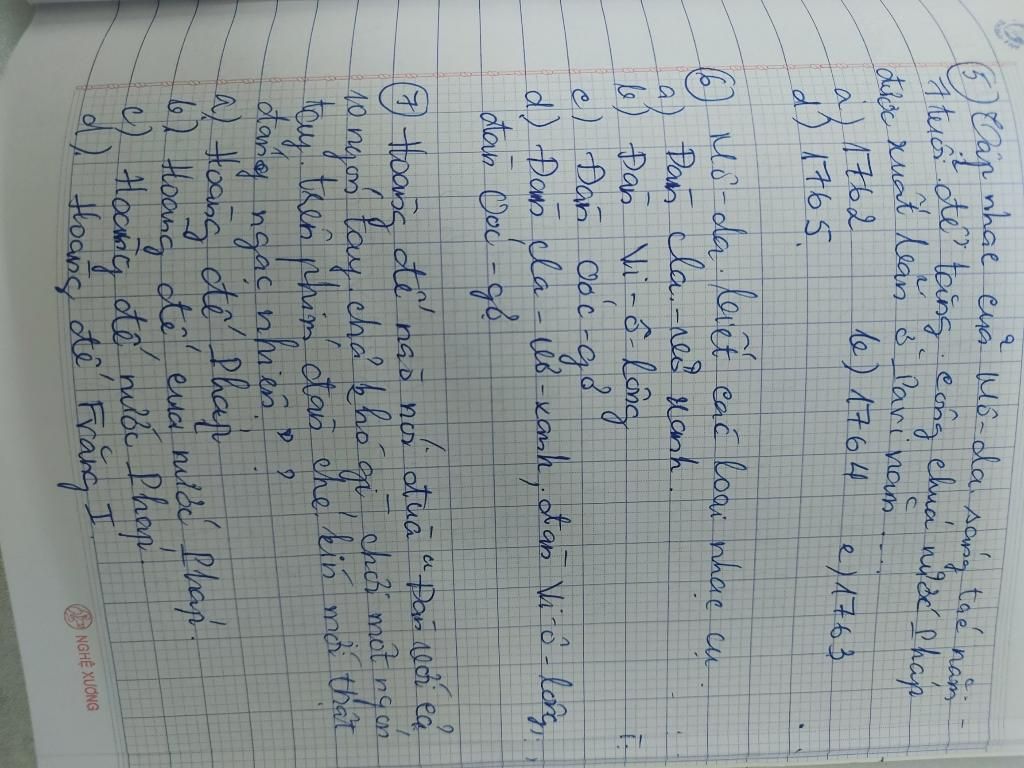 5) Tập nhạc của Mô-da sáng tác năm
7 tuổi để tặng công chúa nước Pháp
được xuất bản ở Pari năm....
a) 1762 b) 1764 c) 1763
d) 1765.
6 Mô-da biết các loại nhạc cụ:
a) Đàn cla-vơ xanh.
b) Đàn Vi-ô-lông
c) Đàn Oóc-gơ
d) Đàn cla-vơ-xanh, đàn Vi-ô-lông,
đàn Oóc-gơ
7) Hoàng đế nào nói đùa "Đàn với cả
10 ngón tay chả khó gì, chơi một ngón
tay trên phím đàn che kín mới thật
đáng ngạc nhiên" ?
a) Hoàng đế Pháp
b) Hoàng đế của nước Pháp.
c) Hoàng đế nước Pháp
d). Hoàng đế Frăng I.
NGHÊ XƯỜNG